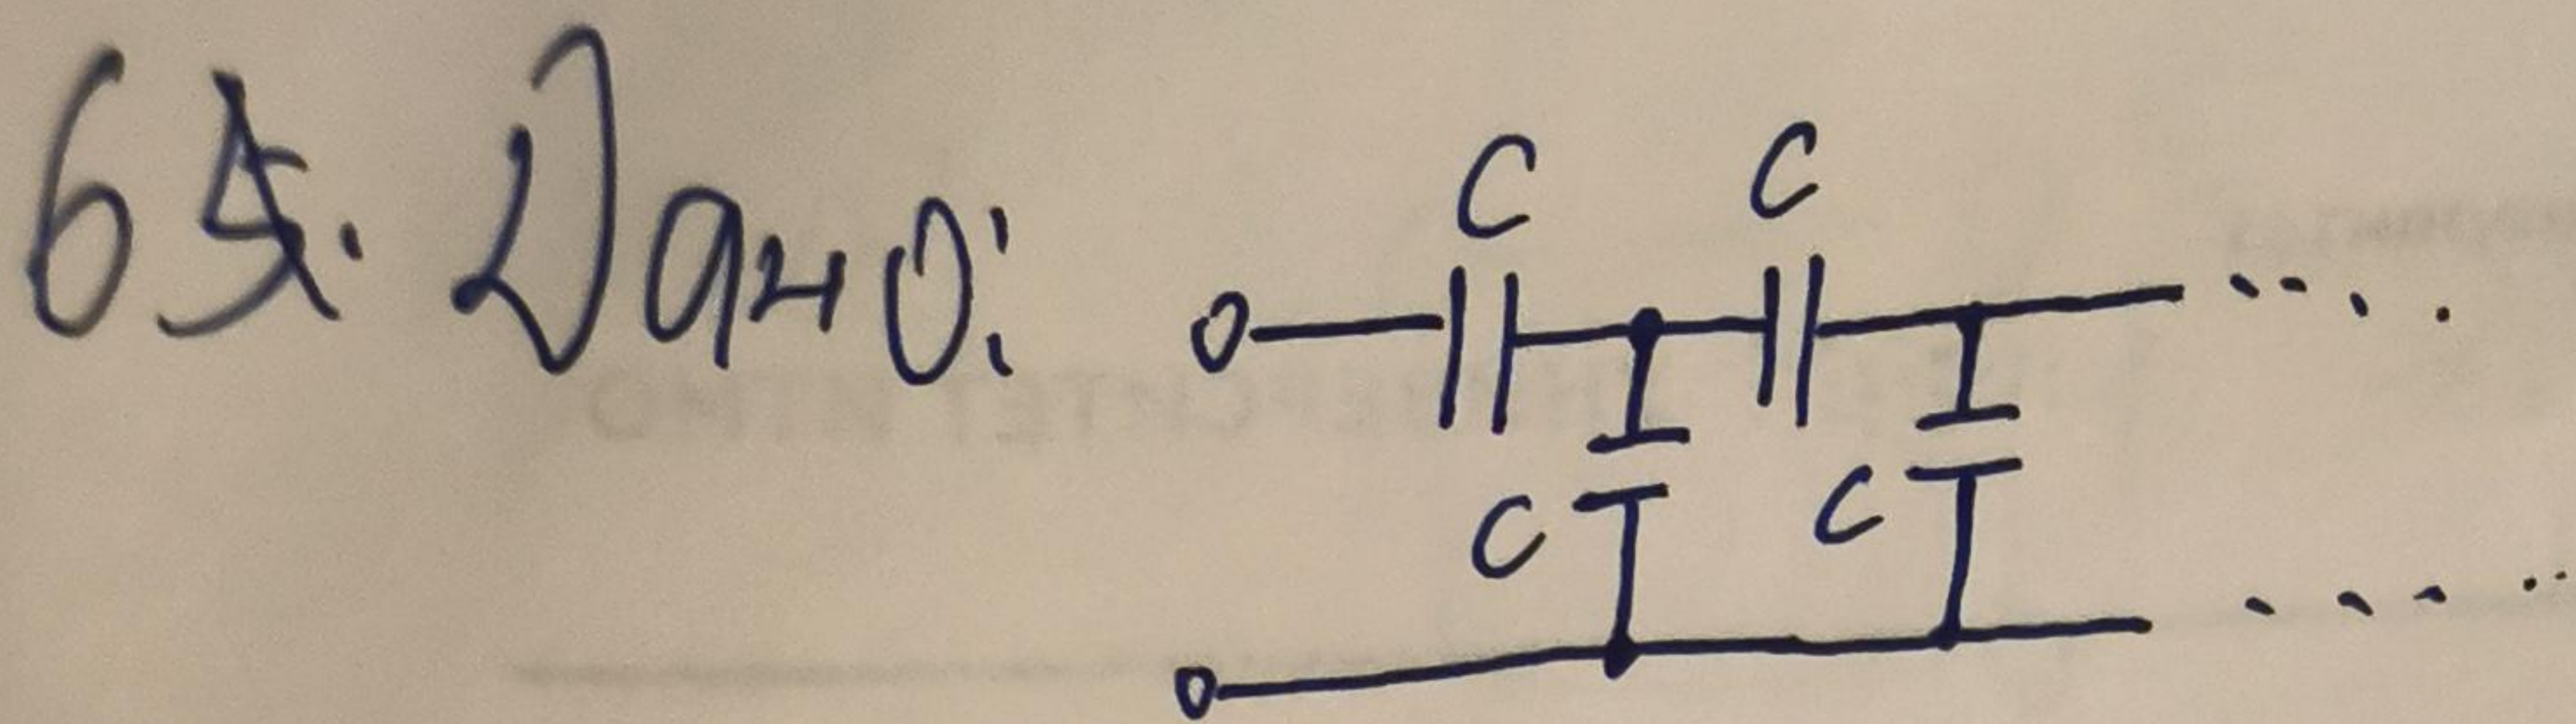 65. Дано:
C C
C C